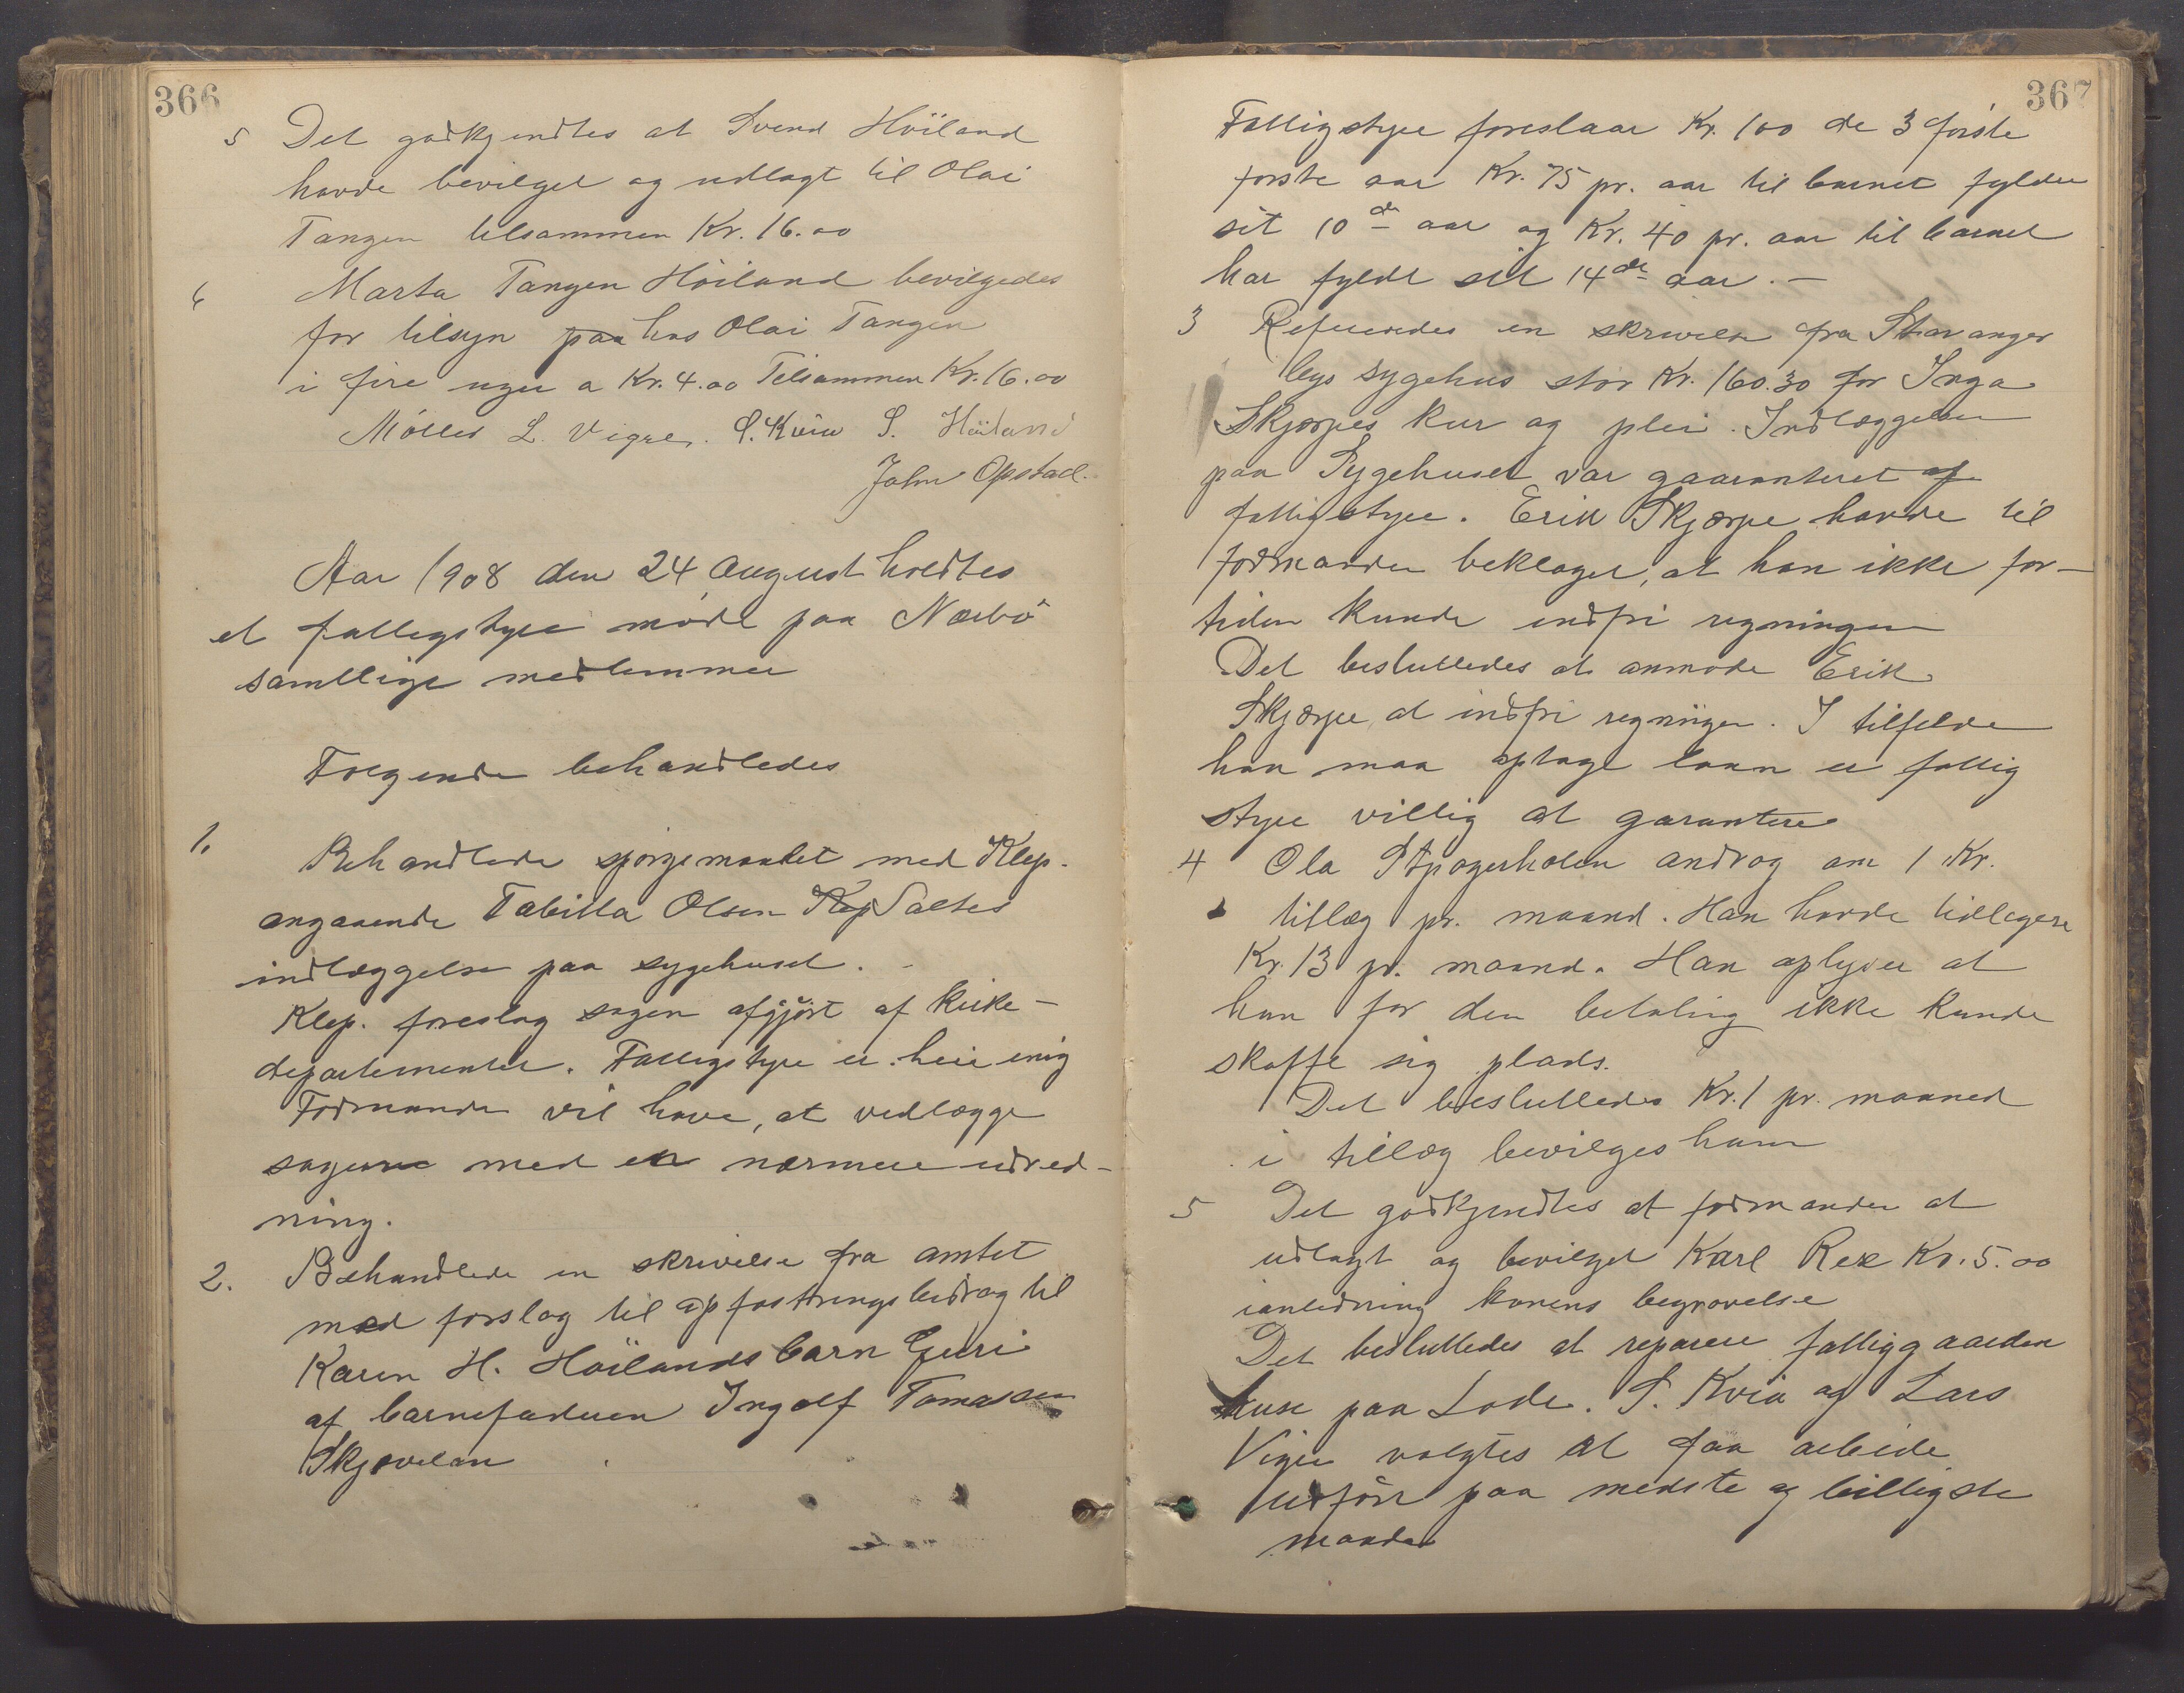 366
5 Det godkjendtes at Svend Höiland
havde bevilget og udlagt til Olai
Tangen tilsammen Kr. 16.00
6 Marta Tangen Höiland bevilgedes
for tilsyn paa hos Olai Tangen
i fire uger a Kr. 4.00 Tilsammen Kr. 16.00
L. Vigre. S. Kvia S. Höiland
John Opstad.
Aar 1908 den 24 August holdtes
et fattigstyre möde paa Nærbö
samtlige medlemmer
Fölgende behandledes
1. Behandlede spörgsmaalet med Klep.
angaaende Tabitta Olsen Klep Saltes
indlæggelse paa sygehuset. -
Klep. foreslog sagen afgjört af kirke-
departementet. Fattigstyre er heri enig
Formanden vil have, at vedlægge
sagerne med en nærmere udred-
ning.
2. Behandlede en skrivelse fra amtet
med forslag til opfostringsbidrag til
Karen H. Höilands barn Guri
af barnefaderen Ingolf Tomassen
Skjævelan
367
Fattigstyre foreslaar Kr. 100 de 3 förste
förste aar Kr. 75 pr. aar til barnet fylder
sit 10de aar og Kr. 40 pr. aar til barnet
har fyldt sit 14de aar. -
3 Refereredes en skrivelse fra Stavanger
bys sygehus stor Kr. 160.30 for Inga
Skjærpes kur og plei. Indlæggelsen
paa Sygehuset var gaaranteret af
fattigstyre. Erik Skjærpe havde til
formanden beklaget, at han ikke for-
tiden kunde indfri regningen
Det besluttedes at anmode Erik
Skjærpe at indfri regningen. I tilfelde
han maa optage laan er fattig
styre villig at garantere
4 Ola androg om 1 Kr.
tillæg pr. maand. Han havde tidligere
Kr. 13 pr. maand. Han oplyser at
han for den betaling ikke kunde
skaffe sig plads.
Det besluttedes Kr. 1 pr. maaned
i tillæg bevilges ham
5 Det godkjendtes at formanden at
udlagt og bevilget Karl Rex Kr. 5.00
ianledning konens begravelse
Det besluttedes at reparere fattiggaarden
huse paa Lode. S. Kvia og Lars
Vigre valgtes at faa arbeide
udfört paa medste og billigste
maade